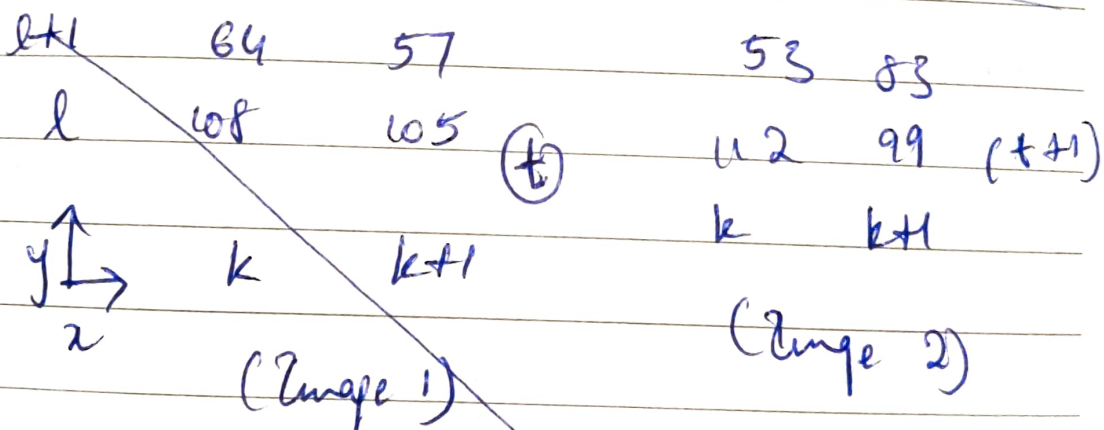 l+1 64 57 53 83
l 108 105 t 112 99 (t+1)
k k+1
y k k+1
x
(Image 2)
(Image 1)